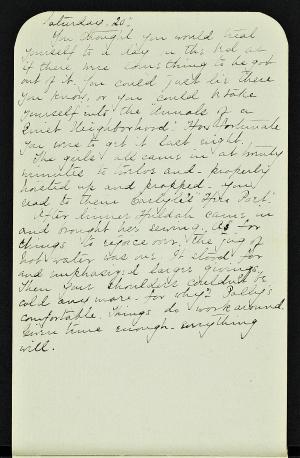 Saturday. 20th
You thought you would treat
yourself to a day in the bed as
if there were something to be got
out of it. You could just lie there
you know, or you could take
yourself into the "Annals of a
Quiet Neighborhood." How fortunate
you were to get it last night.
The girls all came in at twenty
minutes to twelve and - properly
hoisted up and propped - you
read to them Carlyle's "Hero Poet".
After dinner Huldah came in
and brought her sewing. As for
things to rejoice over, the jug of
hot water was one. It stood for
and emphasized larger givings.
Then your shoulders couldn't be
cold any more - for why? Polly's
comfortable. Things do work around.
Given time enough - everything
will.